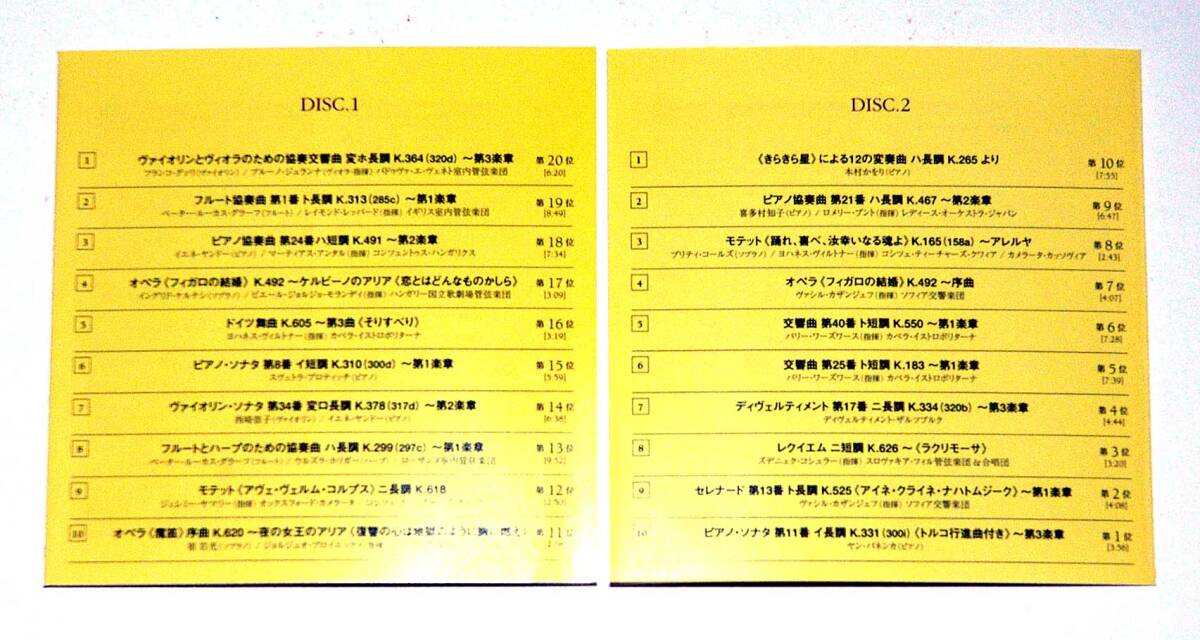 DISC.1
1 ヴァイオリンとヴィオラのための協奏交響曲 変ホ長調 K.364 (320d) ～第3楽章 第20位
フランコ・グッリ(ヴァイオリン) / ブルーノ・ジュランナ(ヴィオラ・指揮) パドゥヴァ・エ・ヴェネト室内管弦楽団 [6:20]
2 フルート協奏曲 第1番 ト長調 K.313 (285c) ～第1楽章 第19位
ペーター・ルーカス・グラーフ(フルート) / レイモンド・レッパード(指揮) イギリス室内管弦楽団 [8:49]
3 ピアノ協奏曲 第24番ハ短調 K.491 ～第2楽章 第18位
イエネ・ヤンドー(ピアノ) / マーティアス・アンタル(指揮) コンツェントゥス・ハンガリクス [7:34]
4 オペラ《フィガロの結婚》 K.492 ～ケルビーノのアリア《恋とはどんなものかしら》 第17位
イングリッド・ケルテシ(ソプラノ) / ピエール・ジョルジョ・モランディ(指揮) ハンガリー国立歌劇場管弦楽団 [3:09]
5 ドイツ舞曲 K.605 ～第3曲《そりすべり》 第16位
ヨハネス・ヴィルトナー(指揮) カペラ・イストロポリターナ [3:19]
6 ピアノ・ソナタ 第8番 イ短調 K.310 (300d) ～第1楽章 第15位
スヴェトラ・プロティッチ(ピアノ) [5:59]
7 ヴァイオリン・ソナタ 第34番 変ロ長調 K.378 (317d) ～第2楽章 第14位
西崎崇子(ヴァイオリン) / イエネ・ヤンドー(ピアノ) [6:36]
8 フルートとハープのための協奏曲 ハ長調 K.299 (297c) ～第1楽章 第13位
ペーター・ルーカス・グラーフ(フルート) / ウルズラ・ホリガー(ハープ) ローザンヌ室内管弦楽団 [9:52]
9 モテット《アヴェ・ヴェルム・コルプス》ニ長調 K.618 第12位
ジェレミー・サマリー(指揮) オックスフォード・カメラータ
10 オペラ《魔笛》序曲 K.620 ～夜の女王のアリア《復讐の心は地獄のように胸に燃え》 第11位
DISC.2
1 《きらきら星》による12の変奏曲 ハ長調 K.265 より 第10位
木村かをり(ピアノ) [7:55]
2 ピアノ協奏曲 第21番 ハ長調 K.467 ～第2楽章 第9位
喜多村知子(ピアノ) / ロメリー・プント(指揮) レディース・オーケストラ・ジャパン [6:47]
3 モテット《踊れ、喜べ、汝幸いなる魂よ》 K.165 (158a) ～アレルヤ 第8位
プリティ・コールズ(ソプラノ) / ヨハネス・ヴィルトナー(指揮) コシツェ・ティーチャーズ・クワイア / カメラータ・カッソヴィア [2:43]
4 オペラ《フィガロの結婚》 K.492 ～序曲 第7位
ヴァシル・カザンジェフ(指揮) ソフィア交響楽団 [4:07]
5 交響曲 第40番 ト短調 K.550 ～第1楽章 第6位
バリー・ワーズワース(指揮) カペラ・イストロポリターナ [7:28]
6 交響曲 第25番 ト短調 K.183 ～第1楽章 第5位
バリー・ワーズワース(指揮) カペラ・イストロポリターナ [7:39]
7 ディヴェルティメント 第17番 ニ長調 K.334 (320b) ～第3楽章 第4位
ディヴェルティメント・ザルツブルク [4:44]
8 レクイエム ニ短調 K.626 ～《ラクリモーサ》 第3位
ズデニェク・コシュラー(指揮) スロヴァキア・フィル管弦楽団&合唱団 [3:20]
9 セレナード 第13番 ト長調 K.525 《アイネ・クライネ・ナハトムジーク》 ～第1楽章 第2位
ヴァシル・カザンジェフ(指揮) ソフィア交響楽団 [4:08]
10 ピアノ・ソナタ 第11番 イ長調 K.331 (300i) 《トルコ行進曲付き》 ～第3楽章 第1位
ヤン・パネンカ(ピアノ) [3:56]